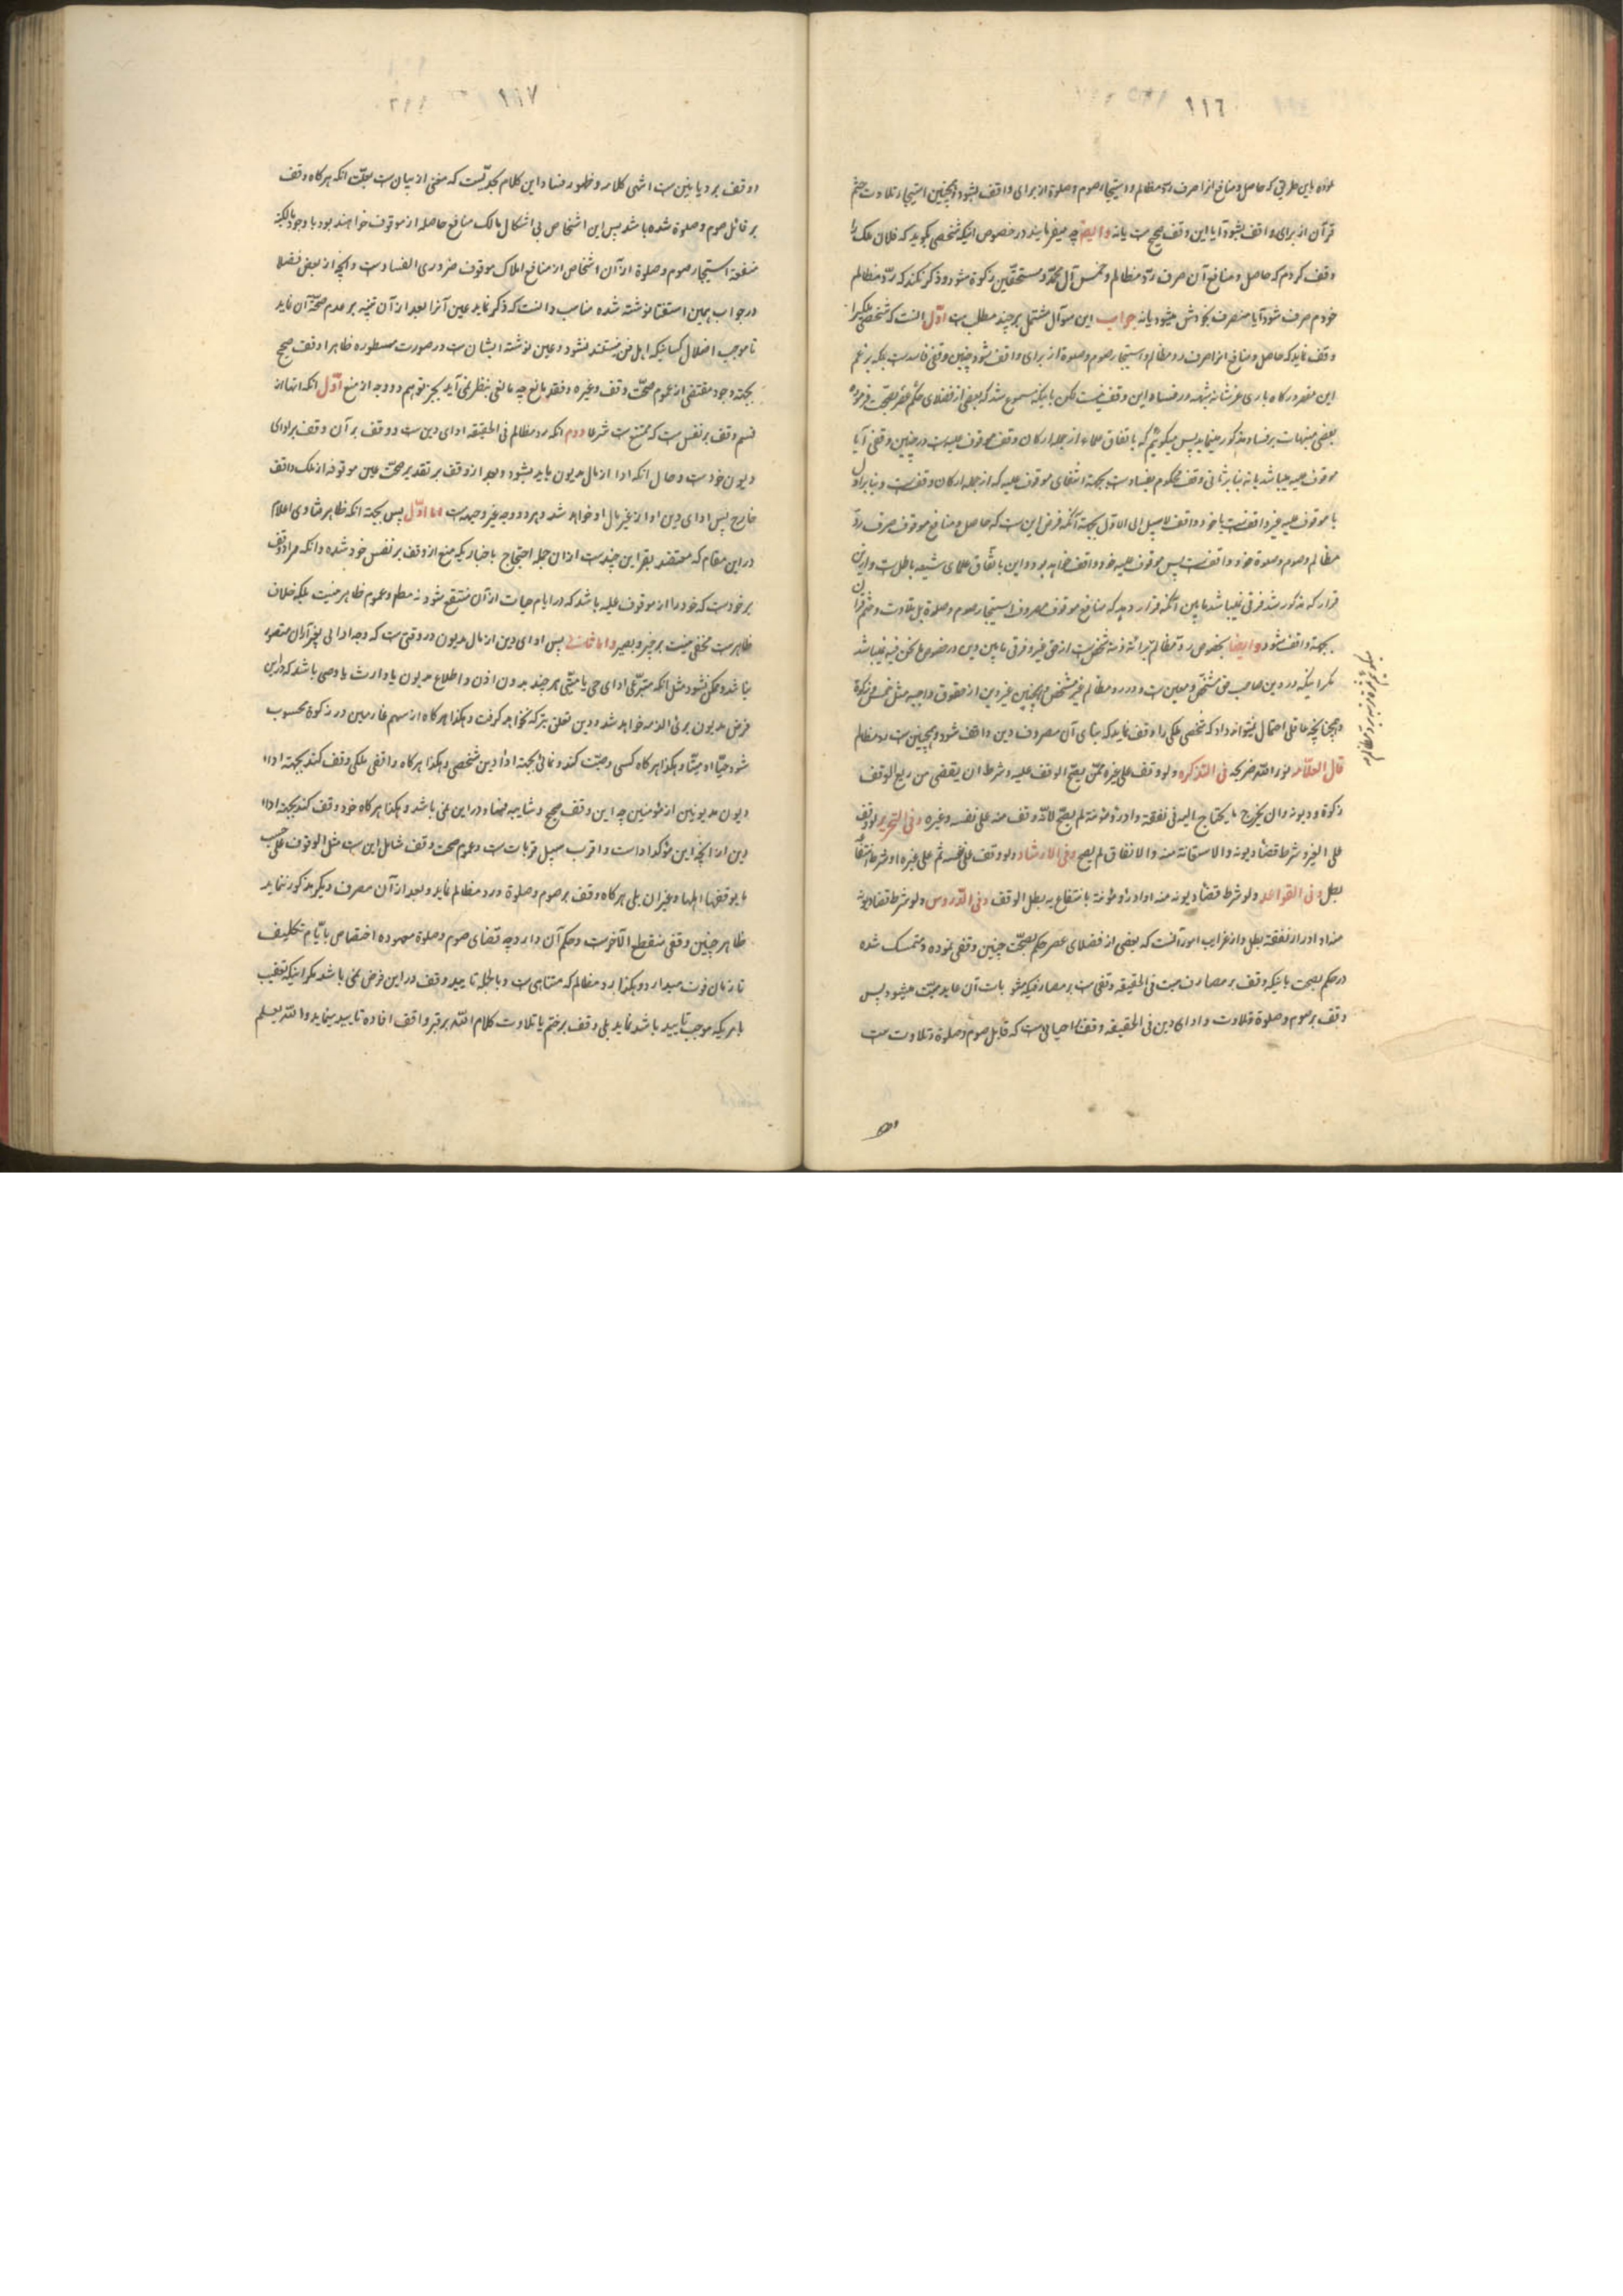 ١١٦
نموده باین طریق که حاصل و منافع آنرا صرف رد مظالم و استیجار صوم و صلوة از برای واقف بشود و همچنین استیجار تلاوت ختم
قرآن از برای واقف بشود آیا این وقف صحیح است یا نه و ایضا چه میفرمایند در خصوص اینکه شخصی بگوید که فلان ملک را
وقف کردم که حاصل و منافع آن صرف رد مظالم و خمس آل محمد و مستحقین زکوة شود و ذکر نکند که رد مظالم
خودم صرف شود آیا منصرف بخودش میشود یا نه جواب این سؤال مشتمل بر چند مطلب است اول آنست که شخصی ملکیرا
وقف نماید که حاصل و منافع آنرا صرف رد مظالم و استیجار صوم و صلوة از برای واقف شود چنین وقفی فاسد است بلکه بزعم
این مقصر درگاه باری عز شانه شبهه در فساد این وقف نیست لکن باینکه مسموع شد که بعضی از فضلای حکم بصحت فرموده
بعضی منبهات بر فساد مذکور مینماید پس میگوئیم که باتفاق علماء از جمله ارکان وقف موقوف علیه است در چنین وقفی آیا
موقوف علیه میباشد یا نه بنا بر ثانی وقف محکوم بفساد است بجهة انتفای موقوف علیه که از جمله ارکان وقف است و بنا بر اول
یا موقوف علیه غیر واقف است یا خود واقف لا سبیل الی الاول بجهة آنکه فرض این است که حاصل و منافع موقوف صرف رد
مظالم و صوم و صلوة خود واقف است پس موقوف علیه خود واقف خواهد بود و این باتفاق علمای شیعه باطل است و از این
قرار که مذکور شد فرقی نمیباشد ما بین آنکه قرار دهد که منافع موقوف مصروف استیجار صوم و صلوة بل تلاوت و ختم قرآن
بجهة واقف شود و ایضا بخصوص رد مظالم
مگر اینکه در دین صاحب حق مشخص و معین است و در رد مظالم غیر مشخص و همچنین غیر دین از حقوق واجبه مثل خمس و زکوة
و همچنانچه عاقلی احتمال نمیتواند داد که شخصی ملکی را وقف نماید که منافع آن مصروف دین واقف شود و همچنین است رد مظالم
قال العلامه نور الله ضریحه فی التذکره ولو وقف علی غیره ممن یصح الوقف علیه و شرط ان یقضی من ریع الوقف
زکوة و دیونه و ان یخرج ما یحتاج الیه فی نفقته و ادرار مؤنته لم یصح لانه وقف منه علی نفسه و غیره و فی التحریر لو وقف
علی الغیر و شرط قضاء دیونه و الاستقانة منه و الانفاق لم یصح و فی الارشاد و لو وقف علی نفسه ثم علی غیره او شرط انتفاعه
بطل و فی القواعد و لو شرط قضاء دیونه منه او ادرار مؤنته او انتفاع به بطل الوقف و فی الدروس و لو شرط قضاء دیونه
منه او ادرار نفقته بطل و از غرایب امور آنست که بعضی از فضلای عصر حکم بصحت چنین وقفی نموده و متمسک شده
در حکم بصحت باینکه وقف بر مصارف میت فی الحقیقه وقفی است بر مصارفیکه مثوبات آن عاید میت میشود پس
وقف بر صوم و صلوة و تلاوت و ادای دین فی الحقیقه وقف بر احیائی است که قابل صوم و صلوة و تلاوت است
١١٧
او وقف بر دیانین است انتهی کلامه و ظهور فساد این کلام بحدیست که مغنی از بیان است بجهت آنکه هرگاه وقف
بر قائل صوم و صلوة شده باشد پس این اشخاص بی اشکال مالک منافع حاصله از موقوف خواهند بود با وجود مالکیه
منفعة استیجار صوم و صلوة از آن اشخاص از منافع املاک موقوف ضروری الفساد است و آنچه از بعض فضلا
در جواب همین استفتا نوشته شده مناسب دانست که ذکر نماید عین آنرا بعد از آن تنبیه بر عدم صحة آن نماید
تا موجب اضلال کسانیکه اهل فن نیستند نشود و عین نوشته ایشان است در صورت مسطوره ظاهرا وقف صحیح
بجهة وجود مقتضی از عموم صحت وقف و غیره و فقد مانع چه مانعی بنظر نمی آید بجز توهم دو وجه از منع اول آنکه اینها از
قسم وقف بر نفس است که ممتنع است شرعا دوم آنکه رد مظالم فی الحقیقه ادای دین است و وقف بر آن وقف بر ادای
دیون خود است و حال آنکه ادا از مال مدیون باید بشود و بعد از وقف بر تقدیر صحت عین موقوفه از ملک واقف
خارج پس ادای دین او از غیر مال او خواهد شد و هر دو وجه غیر وجیه است اما اول پس بجهة آنکه ظاهر فتاوی اعلام
در این مقام که معتضد بقراین چند است از ان جمله احتجاج باخباریکه منع از وقف بر نفس خود شده و آنکه مراد وقف
بر خود است که خود را از موقوف علیه باشد که در ایام حیات از آن منتفع شود نه مطلقا و عموم ظاهر نیست بلکه خلاف
ظاهر است مخفی نیست بر خبیر و بصیر و اما ثانی پس ادای دین از مال مدیون در وقتی است که وجه ادا بی بغیر آن مقصور
نباشد و ممکن نشود مثل آنکه متبرعی ادای حی یا میتی هر چند بدون اذن و اطلاع مدیون یا وارث یا وصی باشد که در این
فرض مدیون بری الذمه خواهد شد و دین تعلق بترکه نخواهد گرفت و هکذا هرگاه از سهم غارمین در زکوة محسوب
شود حیا او میتا و هکذا هرگاه کسی وصیت کند و نمائی بجهة اداء دین شخصی و هکذا هرگاه واقفی ملکی وقف کند بجهة اداء
دیون مدیونین از مؤمنین چه این وقف صحیح و شایبه فساد در این نمی باشد و هکذا هرگاه خود وقف کند بجهة اداء
دین
ما یوقفها اهلها و غیر ان بلی هرگاه وقف بر صوم و صلوة و رد مظالم نماید و بعد از آن مصرف دیگر مذکور ننماید
ظاهر چنین وقفی منقطع الآخر است و حکم آن دارد چه قضای صوم و صلوة معهوده اختصاص بایام تکلیف
تا زمان فوت میدارد و هکذا رد مظالم که متناهی است و بالجمله تایید وقف در این فرض نمی باشد مگر اینکه تعقیب
بامریکه موجب تایید باشد نماید بلی وقف بر ختم یا تلاوت کلام الله بر قبر واقف افاده تایید مینماید و الله یعلم